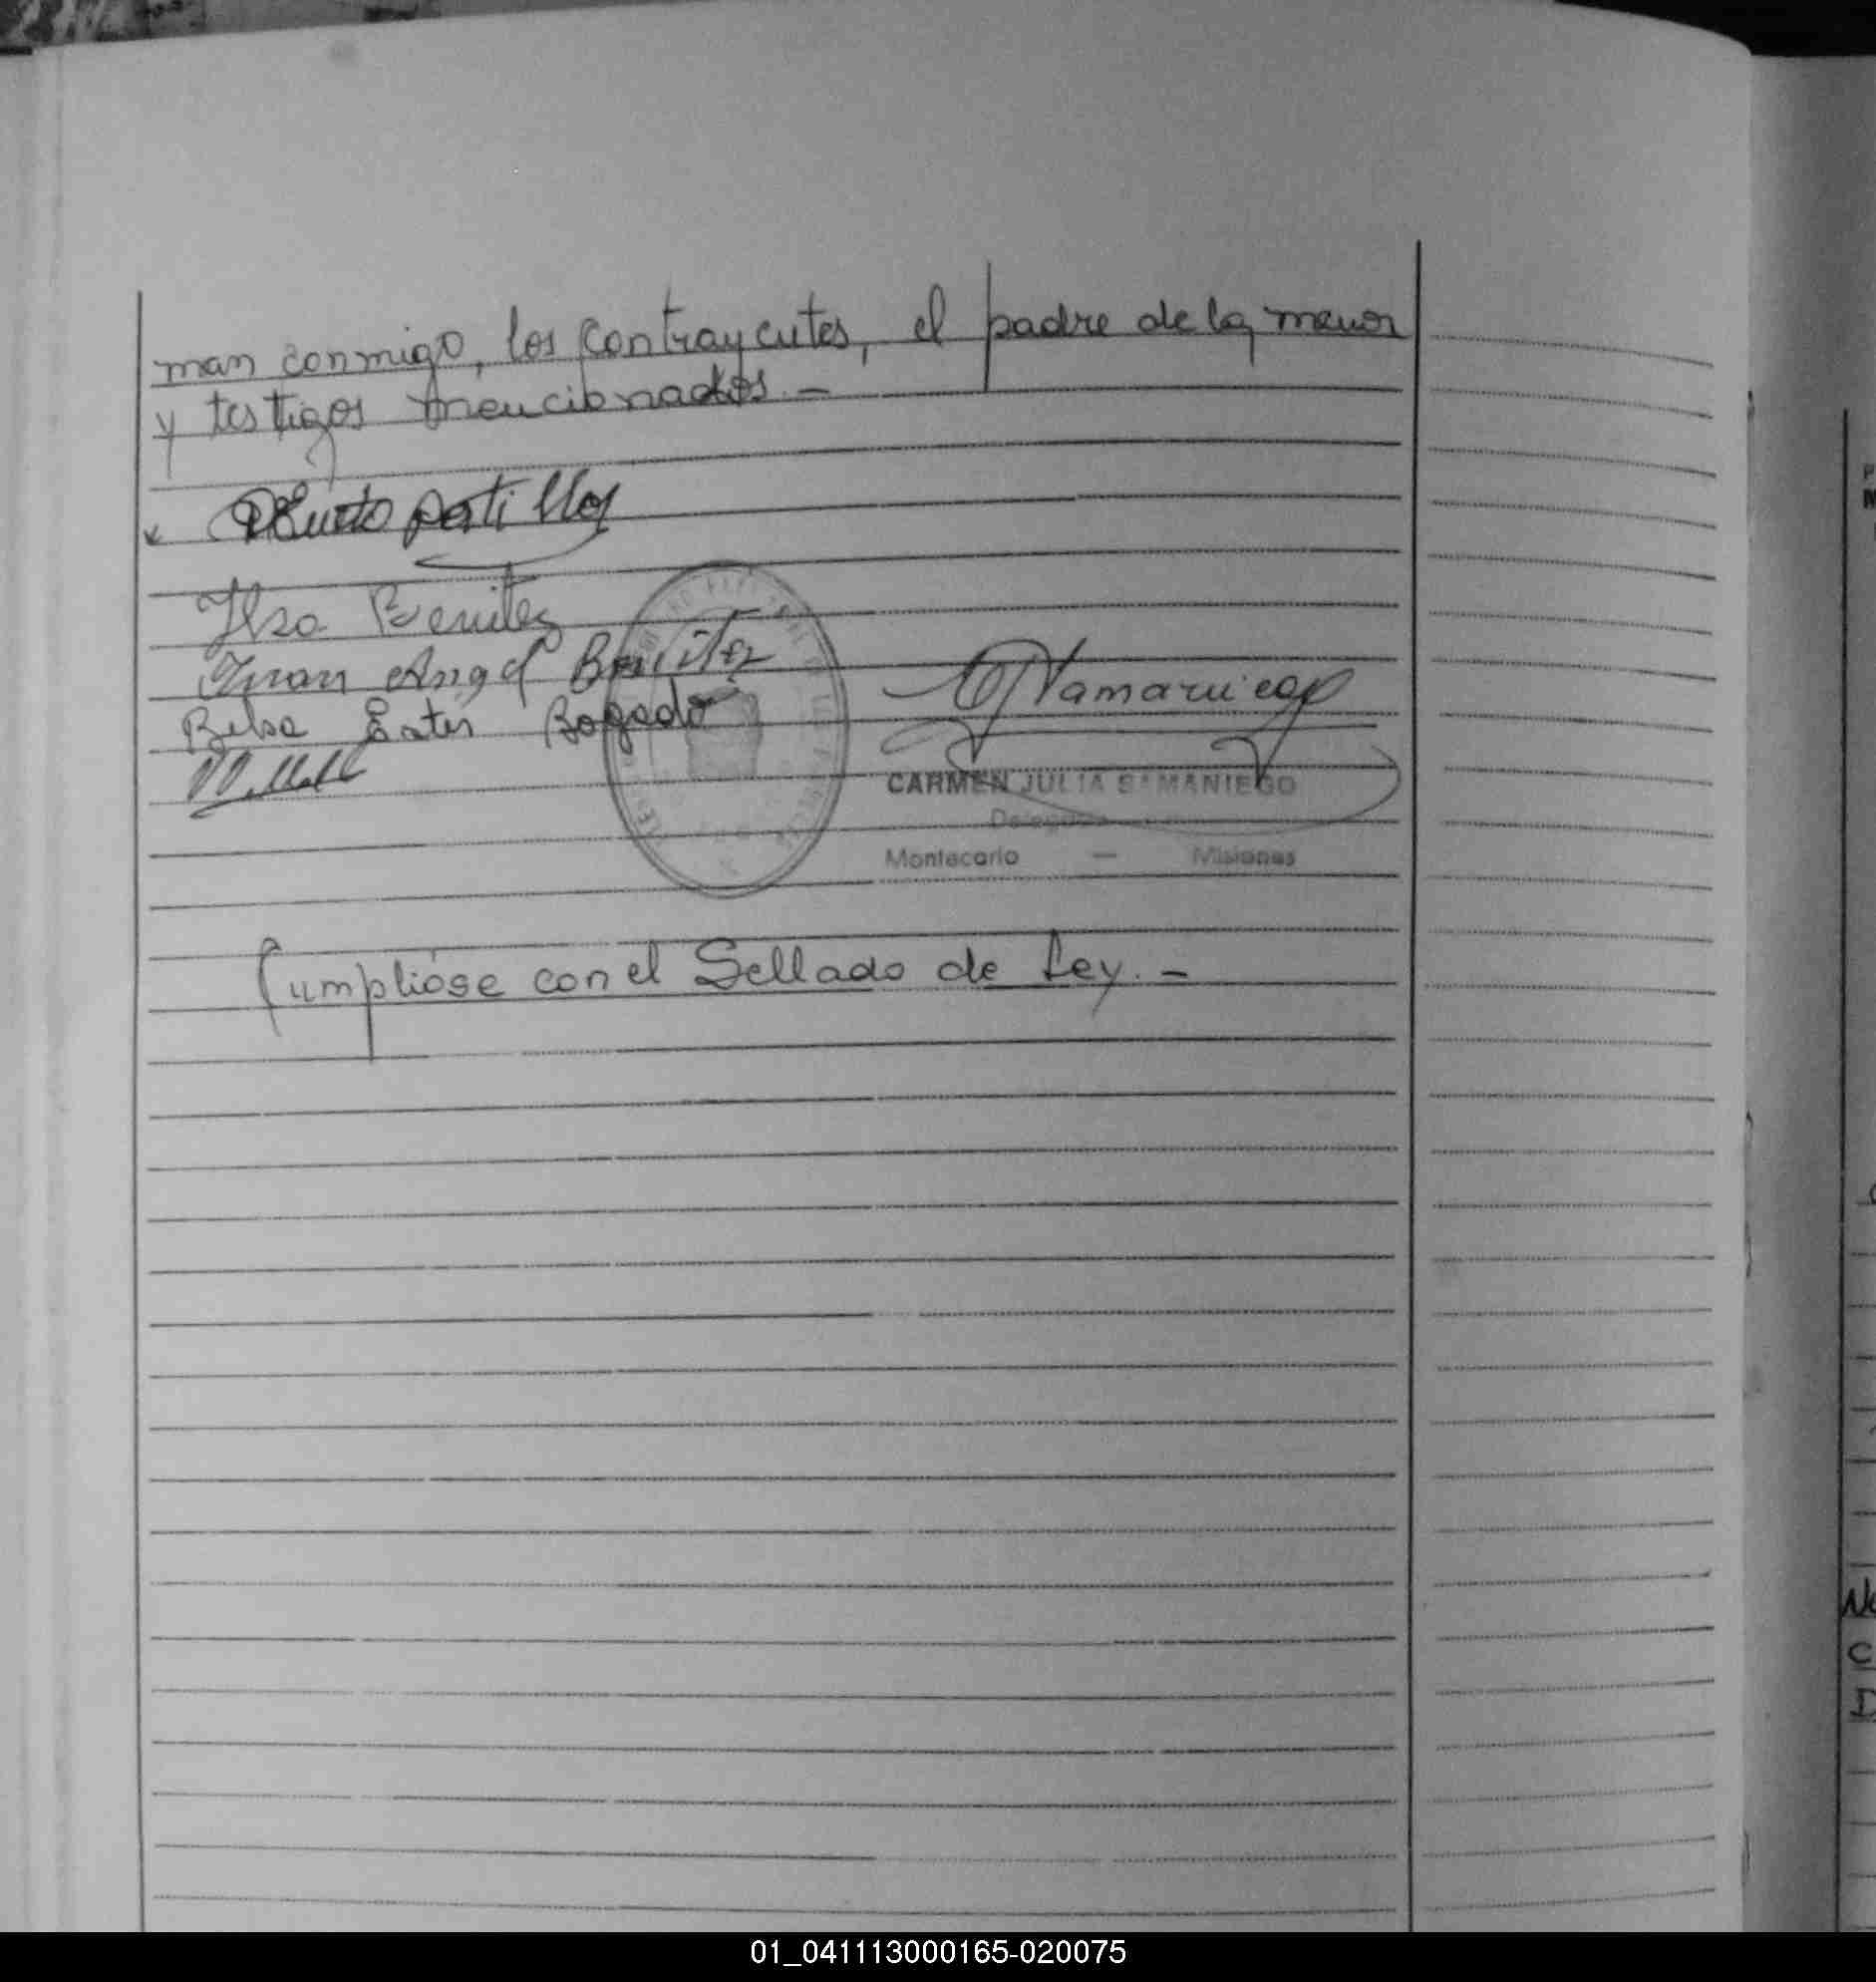 man conmigo, los contrayentes, el padre de la menor
y testigos mencionados. -
Portillo
Ilsa Benitez
Juan Angel Benitez
Ester Bogado
CARMEN JULIA SAMANIEGO
Delegada
Montecarlo — Misiones
Cumplióse con el Sellado de Ley. -
01_041113000165-020075